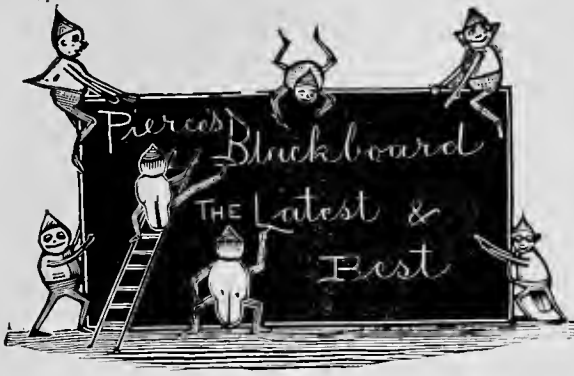 Pierce's Blackboard
THE Latest &
Best